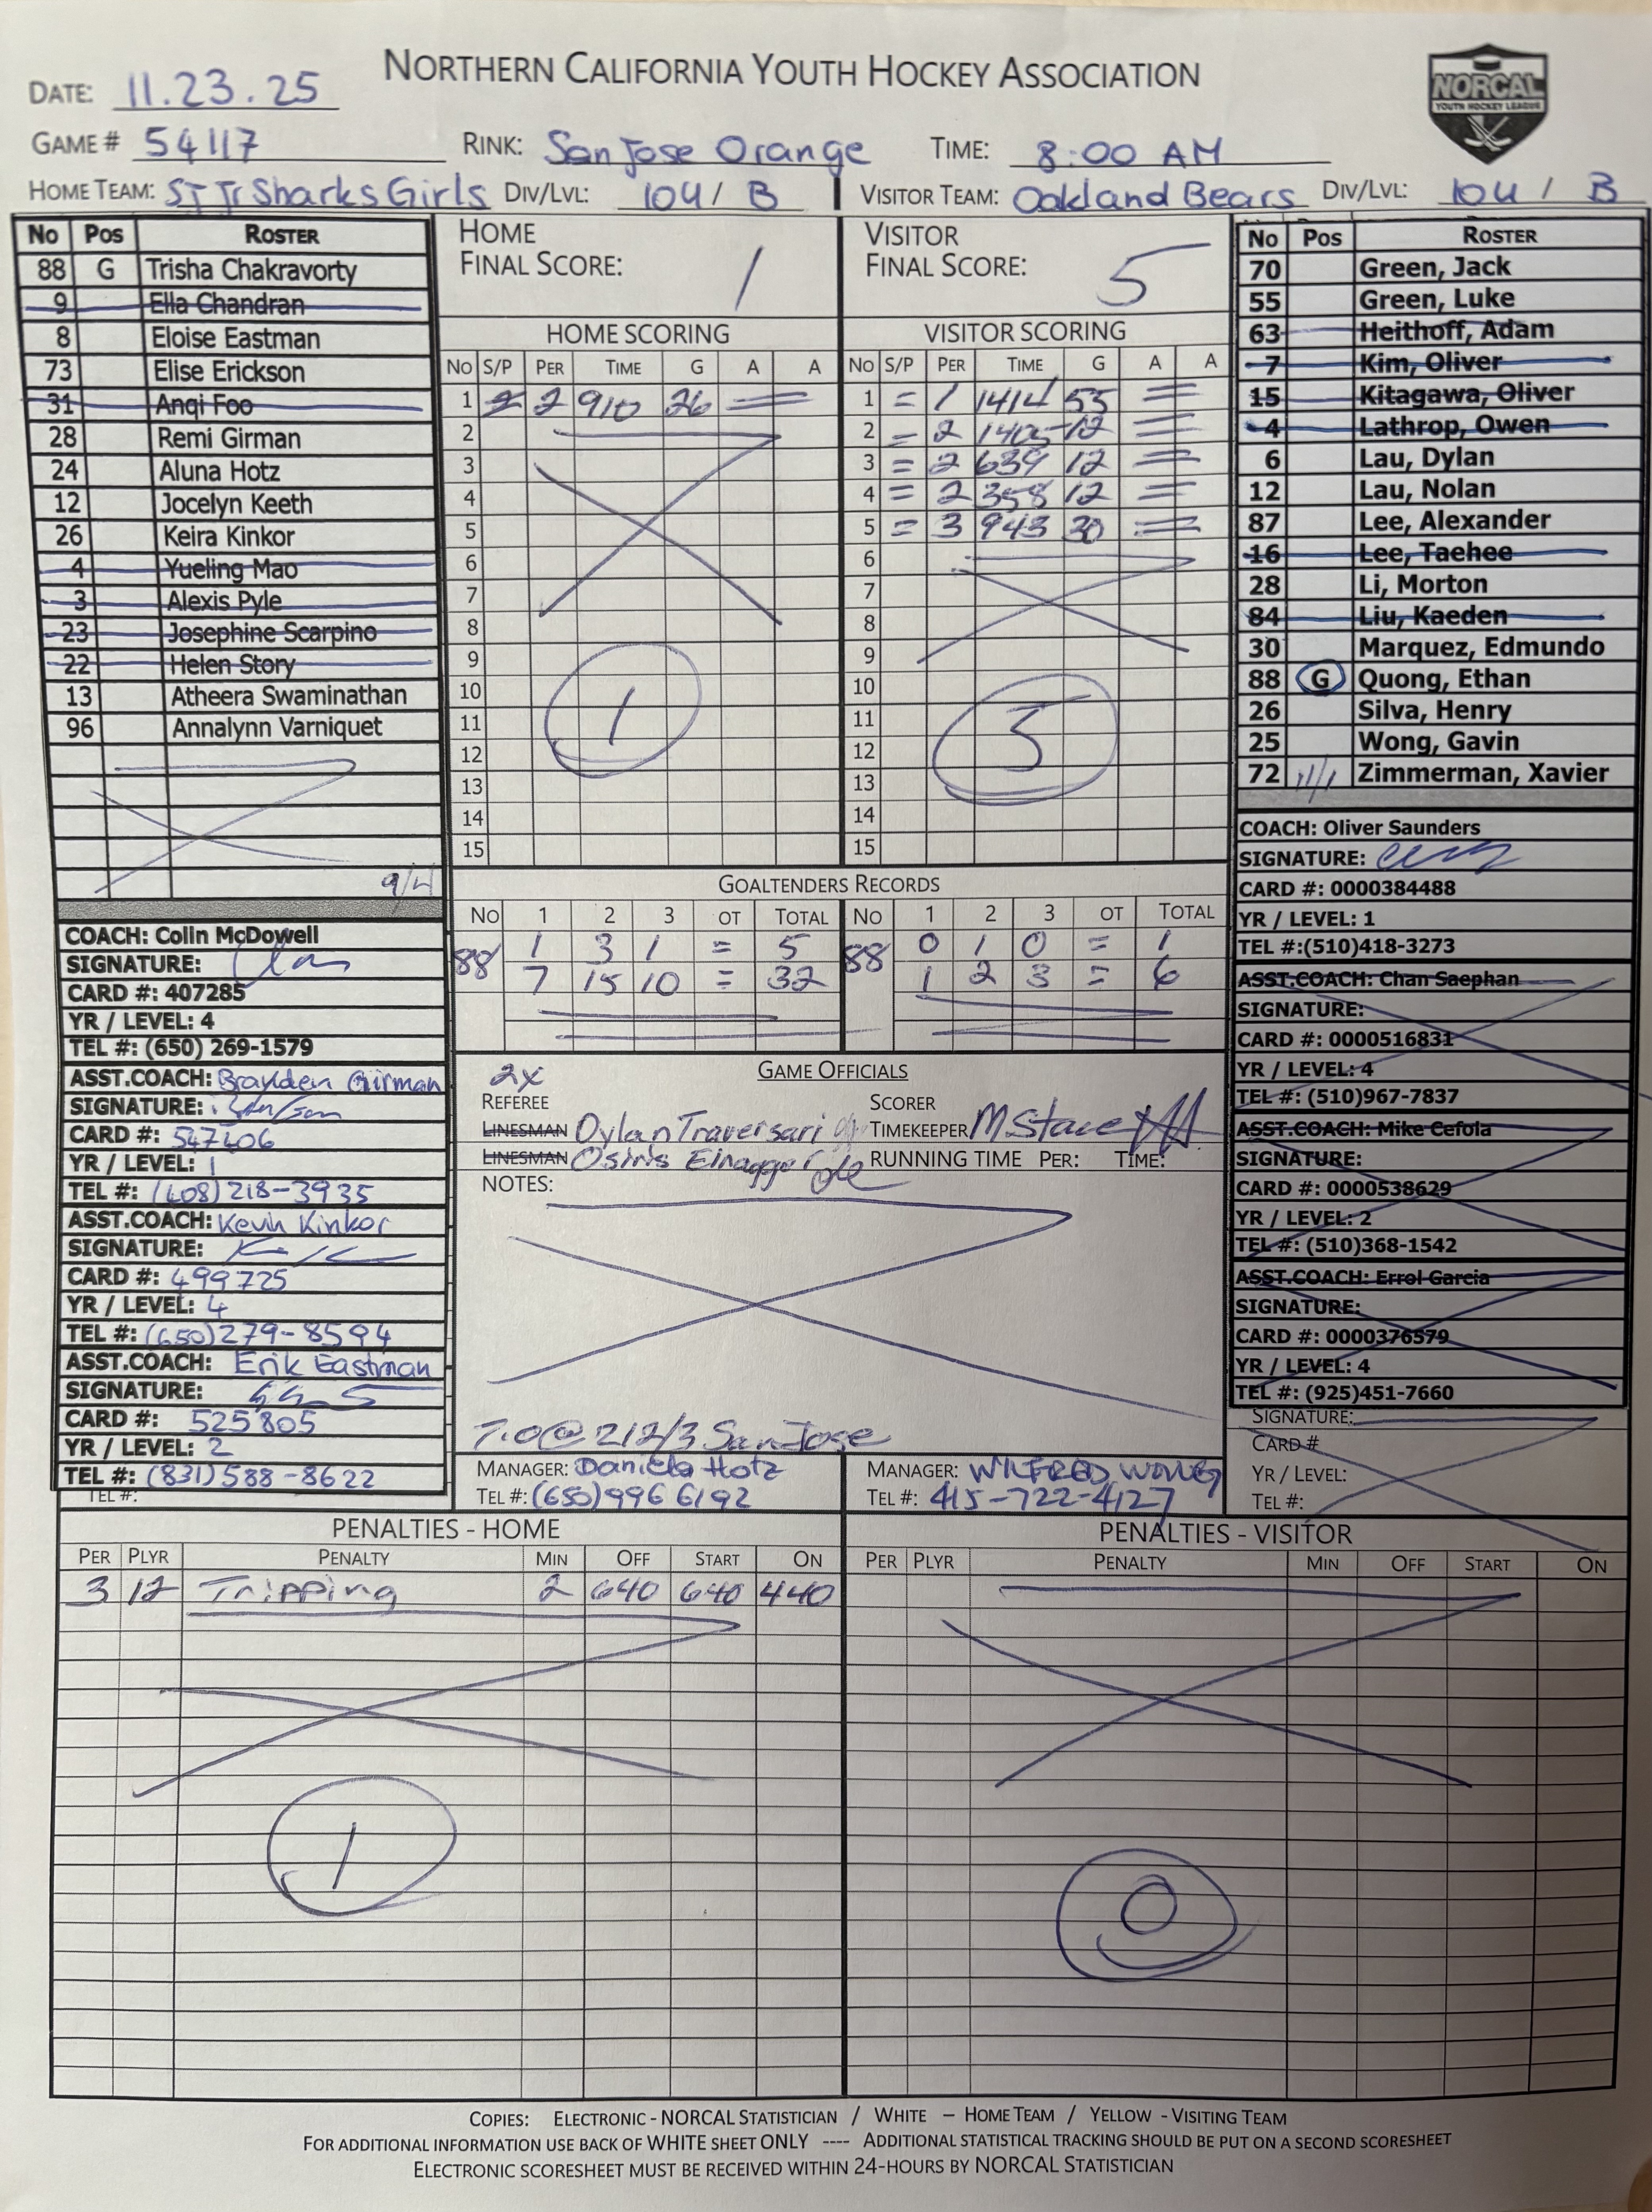 NORTHERN CALIFORNIA YOUTH HOCKEY ASSOCIATION
NORCAL
YOUTH HOCKEY LEAGUE
DATE: 11.23.25
GAME # 54117 RINK: San Jose Orange TIME: 8:00 AM
HOME TEAM: SJ Jr Sharks Girls DIV/LVL: 10U / B VISITOR TEAM: Oakland Bears DIV/LVL: 10U / B
NO POS ROSTER
88 G Trisha Chakravorty
9 Ella Chandran
8 Eloise Eastman
73 Elise Erickson
31 Anqi Foo
28 Remi Girman
24 Aluna Hotz
12 Jocelyn Keeth
26 Keira Kinkor
4 Yueling Mao
3 Alexis Pyle
23 Josephine Scarpino
22 Helen Story
13 Atheera Swaminathan
96 Annalynn Varniquet
9/4
COACH: Colin McDowell
SIGNATURE:
CARD #: 407285
YR / LEVEL: 4
TEL #: (650) 269-1579
ASST.COACH: Brayden Girman
SIGNATURE:
CARD #: 547406
YR / LEVEL: 1
TEL #: (408) 218-3935
ASST.COACH: Kevin Kinkor
SIGNATURE:
CARD #: 499725
YR / LEVEL: 4
TEL #: (650) 279-8594
ASST.COACH: Erik Eastman
SIGNATURE:
CARD #: 525805
YR / LEVEL: 2
TEL #: (831) 588-8622
TEL #:
HOME
FINAL SCORE: 1
HOME SCORING
NO S/P PER TIME G A A
1 2 910 26
2
3
4
5
6
7
8
9
10
11
12
13
14
15
1
VISITOR
FINAL SCORE: 5
VISITOR SCORING
NO S/P PER TIME G A A
1 = 1 1414 55 =
2 = 2 1405 12 =
3 = 2 639 12 =
4 = 2 358 12 =
5 = 3 943 30 =
6
7
8
9
10
11
12
13
14
15
5
GOALTENDERS RECORDS
NO 1 2 3 OT TOTAL NO 1 2 3 OT TOTAL
88 1 3 1 = 5 88 0 1 0 = 1
7 15 10 = 32 1 2 3 = 6
GAME OFFICIALS
2x
REFEREE SCORER
LINESMAN Dylan Traversari TIMEKEEPER M Stace
LINESMAN Osiris RUNNING TIME PER: TIME:
NOTES:
T.O @ 212/3 San Jose
MANAGER: Daniela Hotz MANAGER: WILFRED WONG
TEL #: (650) 996 6192 TEL #: 415-722-4127
NO POS ROSTER
70 Green, Jack
55 Green, Luke
63 Heithoff, Adam
7 Kim, Oliver
15 Kitagawa, Oliver
4 Lathrop, Owen
6 Lau, Dylan
12 Lau, Nolan
87 Lee, Alexander
16 Lee, Taehee
28 Li, Morton
84 Liu, Kaeden
30 Marquez, Edmundo
88 G Quong, Ethan
26 Silva, Henry
25 Wong, Gavin
72 11/1 Zimmerman, Xavier
COACH: Oliver Saunders
SIGNATURE:
CARD #: 0000384488
YR / LEVEL: 1
TEL #:(510)418-3273
ASST.COACH: Chan Saephan
SIGNATURE:
CARD #: 0000516831
YR / LEVEL: 4
TEL #: (510)967-7837
ASST.COACH: Mike Cefola
SIGNATURE:
CARD #: 0000538629
YR / LEVEL: 2
TEL #: (510)368-1542
ASST.COACH: Errol Garcia
SIGNATURE:
CARD #: 0000376579
YR / LEVEL: 4
TEL #: (925)451-7660
SIGNATURE:
CARD #
YR / LEVEL:
TEL #:
PENALTIES - HOME
PER PLYR PENALTY MIN OFF START ON
3 12 Tripping 2 640 640 440
1
PENALTIES - VISITOR
PER PLYR PENALTY MIN OFF START ON
0
COPIES: ELECTRONIC - NORCAL STATISTICIAN / WHITE – HOME TEAM / YELLOW - VISITING TEAM
FOR ADDITIONAL INFORMATION USE BACK OF WHITE SHEET ONLY ---- ADDITIONAL STATISTICAL TRACKING SHOULD BE PUT ON A SECOND SCORESHEET
ELECTRONIC SCORESHEET MUST BE RECEIVED WITHIN 24-HOURS BY NORCAL STATISTICIAN